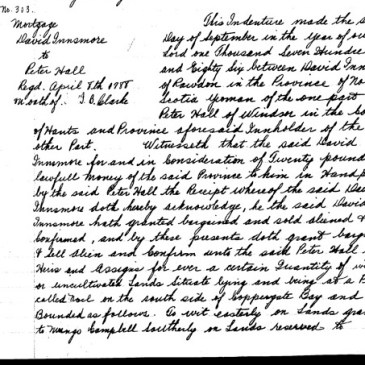 No. 303.
Mortgage
David Innsmore
to
Peter Hall
Regd. April 8th 1788
M oath of J. B. Clarke
This Indenture made the
Day of September in the year of our
Lord one Thousand Seven Hundre
and Eighty Six between David Inn
of Rawdon in the Province of No
Scotia yoman of the one part
Peter Hall of Windsor in the Co
of Hants and Province aforesaid Innholder of the
other Part. Witnesseth that the said David
Innsmore for and in Consideration of Twenty pound
lawfull money of the said Province to him in Hand p
by the said Peter Hall the Receipt whereof the said Dav
Innsmore doth hereby acknowledge, he the said David
Innsmore hath granted bargained and sold aliened &
Confirmed, and by these presents doth grant barg
& sell alien and Confirm unto the said Peter Hall
Heirs and Assigns for ever a certain Quantity of wi
or uncultivated Lands situate lying and being at a P
called on the south side of Coppergate Bay and
Bounded as follows. To wit easterly on Lands gra
to Campbell Southerly on Lands reserved to